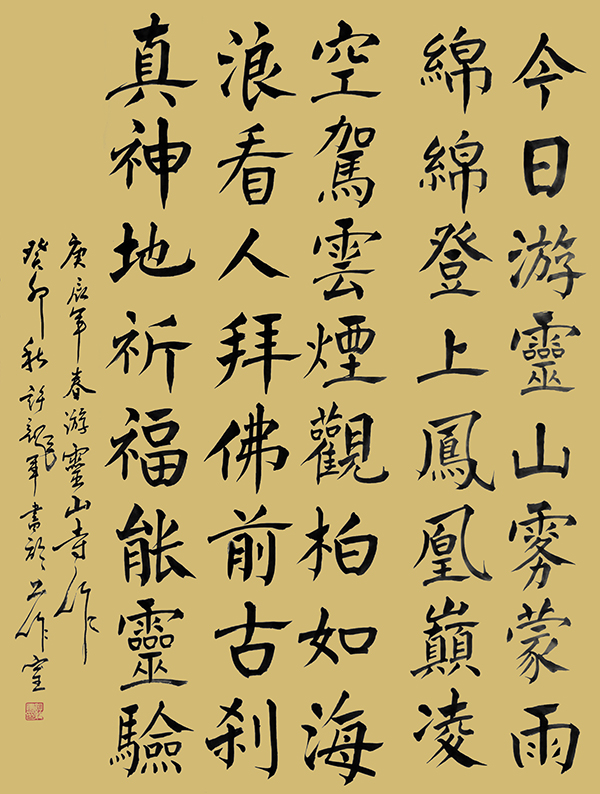 今日游靈山雾蒙雨
綿綿登上鳳凰巔凌
空駕雲煙觀柏如海
浪看人拜佛前古刹
真神地祈福能靈驗
庚辰年春游靈山寺作
癸卯秋許龍军書於工作室